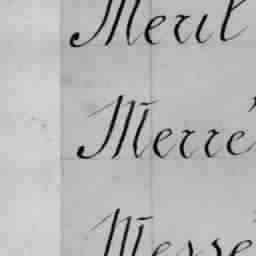 Merit
Merre
Messe